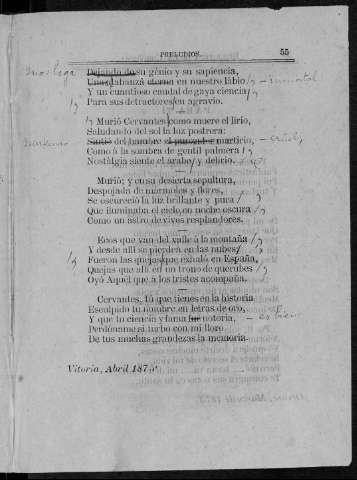 PRELUDIOS. 55
Dejando de su génio y su sapiencia,
Una alabanza eterna en nuestro lábio
Y un cuantioso caudal de gaya ciencia
Para sus detractores en agravio.
Murió Cervantes como muere el lirio,
Saludando del sol la luz postrera:
del hambre el punzador martirio,
Como á la sombra de gentil palmera
Nostálgia siente el árabe y delirio.
Murió; y en su desierta sepultura,
Despojada de mármoles y flores,
Se oscureció la luz brillante y pura
Que iluminaba el cielo en noche oscura
Como un astro de vivos resplandores.
Ecos que van del valle á la montaña
Y desde allí se pierden en las nubes
Fueron las quejas que exhaló en España,
Quejas que allá en un trono de querubes
Oyó Aquel que á los tristes acompaña.
Cervantes, tú que tienes en la historia
Esculpido tu nombre en letras de oro,
Y que tu ciencia y fama fué notoria,
Perdóname si turbo con mi lloro
De tus muchas grandezas la memoria.
Vitoria, Abril 187